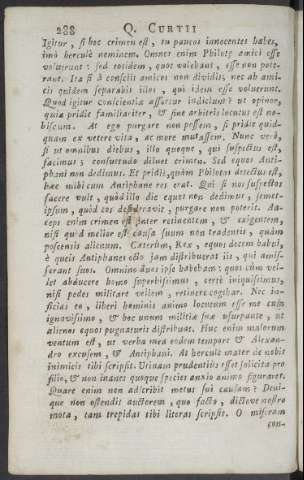 288 Q. CURTII
Igitur, si hoc crimen est, tu paucos innocentes habes,
imò herculè neminem. Omnes enim Philotæ amici esse
voluerunt: sed totidem, quot volebant, esse non pote-
rant. Ita si à consciis amicos non dividis, nec ab ami-
cis quidem separabis illos, qui idem esse voluerunt.
Quod igitur conscientiæ affertur indicium? ut opinor,
quia pridie familiariter, & sine arbitris locutus est no-
biscum. At ego purgare non possem, si pridie quid-
quam ex vetere vita, ac more mutassem. Nunc verò,
si ut omnibus diebus, illo quoque, qui suspectus est,
fecimus; consuetudo diluet crimen. Sed equos Anti-
phani non dedimus. Et pridie, quàm Philotas detectus est,
hæc mihi cum Antiphane res erat. Qui si nos suspectos
facere vult, quòd illo die equos non dedimus; semet-
ipsum, quòd eos desideravit, purgare non poterit. An-
ceps enim crimen est inter retinentem, & exigentem,
nisi quòd melior est causa suum non tradentis, quàm
poscentis alienum. Cæterùm, Rex, equos decem habui,
è queis Antiphanes octo jam distribuerat iis, qui ami-
serant suos. Omnino duos ipse habebam: quos cùm vel-
let abducere homo superbissimus, certè iniquissimus,
nisi pedes militare vellem, retinere cogebar. Nec in-
ficias eo, liberi hominis animo locutum esse me cum
ignavissimo, & hoc unum militiæ suæ usurpante, ut
alienos equos pugnaturis distribuat. Huc enim malorum
ventum est, ut verba mea eodem tempore & Alexan-
dro excusem, & Antiphani. At herculè mater de nobis
inimicis tibi scripsit. Utinam prudentiùs esset solicita pro
filio, & non inanes quoque species anxio animo figuraret.
Quare enim non adscribit metus sui causam? Deni-
que non ostendit auctorem, quo facto, dictove nostro
mota, tam trepidas tibi literas scripsit. O miseram
con-